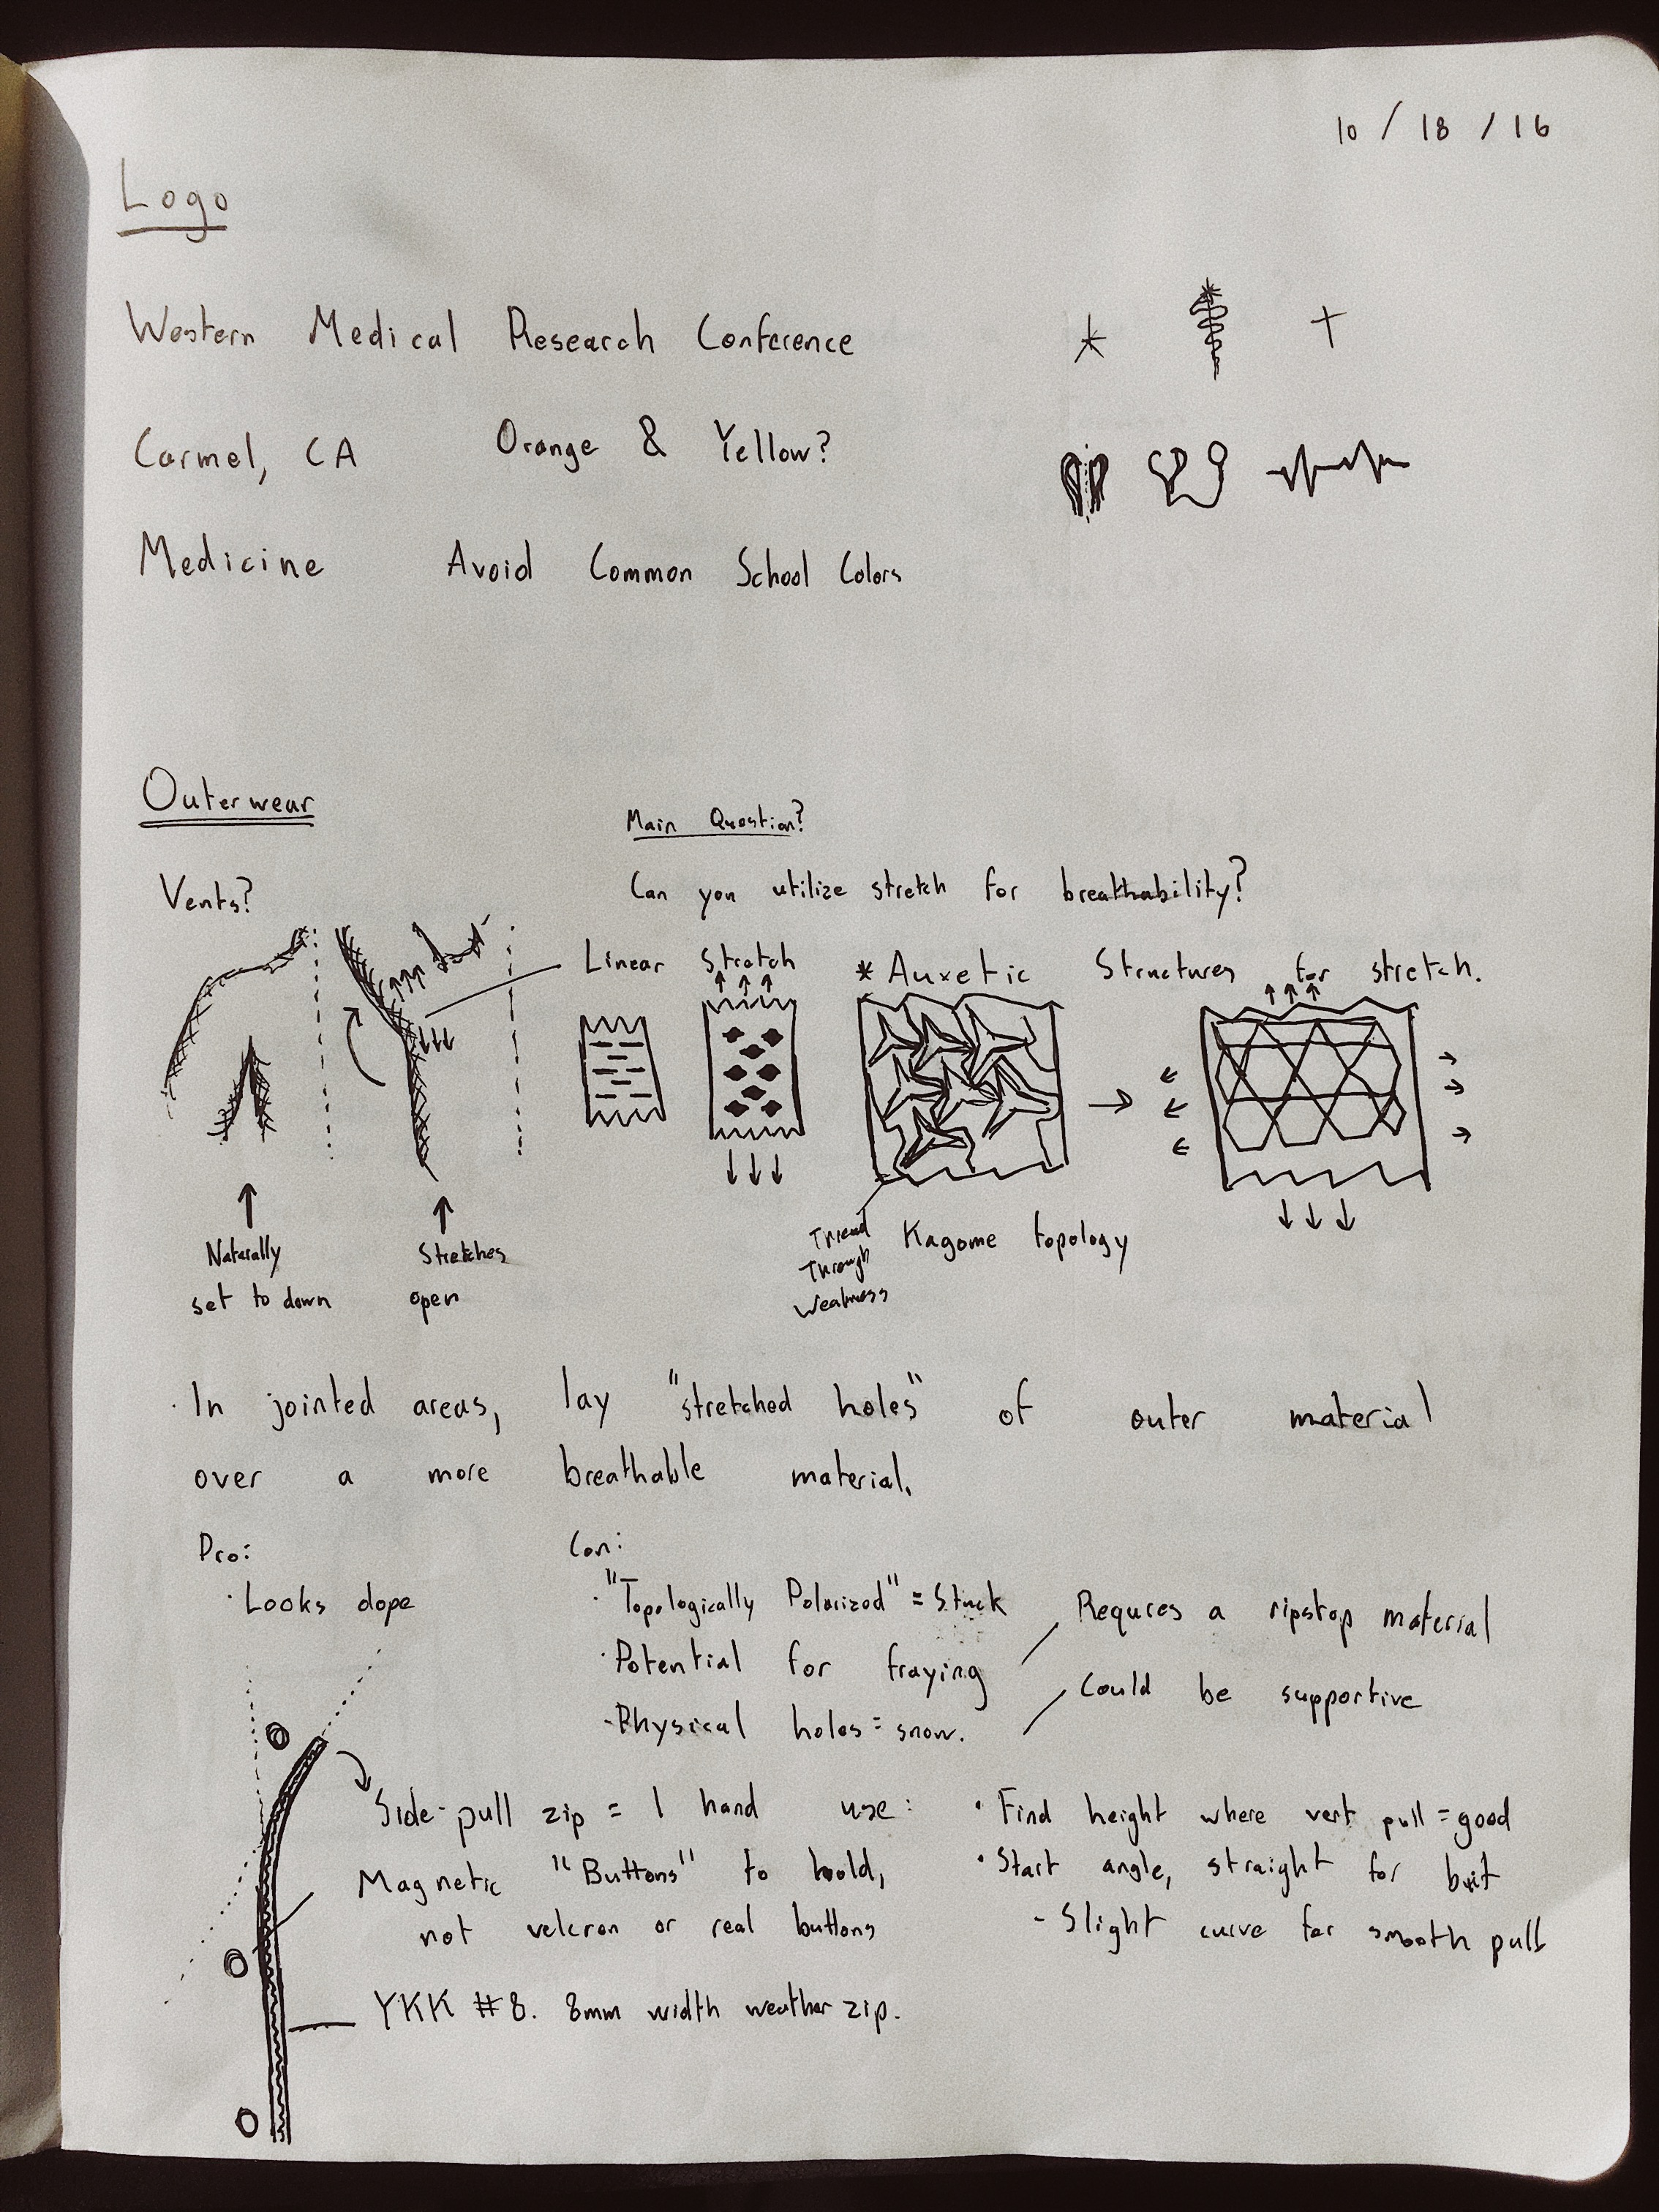 10 / 18 / 16
Logo
Western Medical Research Conference
Carmel, CA Orange & Yellow?
Medicine Avoid Common School Colors
Outerwear
Main Question?
Vents?
Can you utilize stretch for breathability?
Linear Stretch
* Auxetic Structures for stretch.
Naturally
set to down
Stretches
open
Thread
Through
Weakness
Kagome topology
· In jointed areas, lay "stretched holes" of outer material
over a more breathable material.
Pro:
· Looks dope
Con:
· "Topologically Polarized" = Stuck
· Potential for fraying
· Physical holes = snow.
Requres a ripstop material
Could be supportive
Side-pull zip = 1 hand use:
Magnetic "Buttons" to hold,
not velcron or real buttons
YKK #8. 8mm width weather zip.
· Find height where vert pull = good
· Start angle, straight for bit
- Slight curve for smooth pull